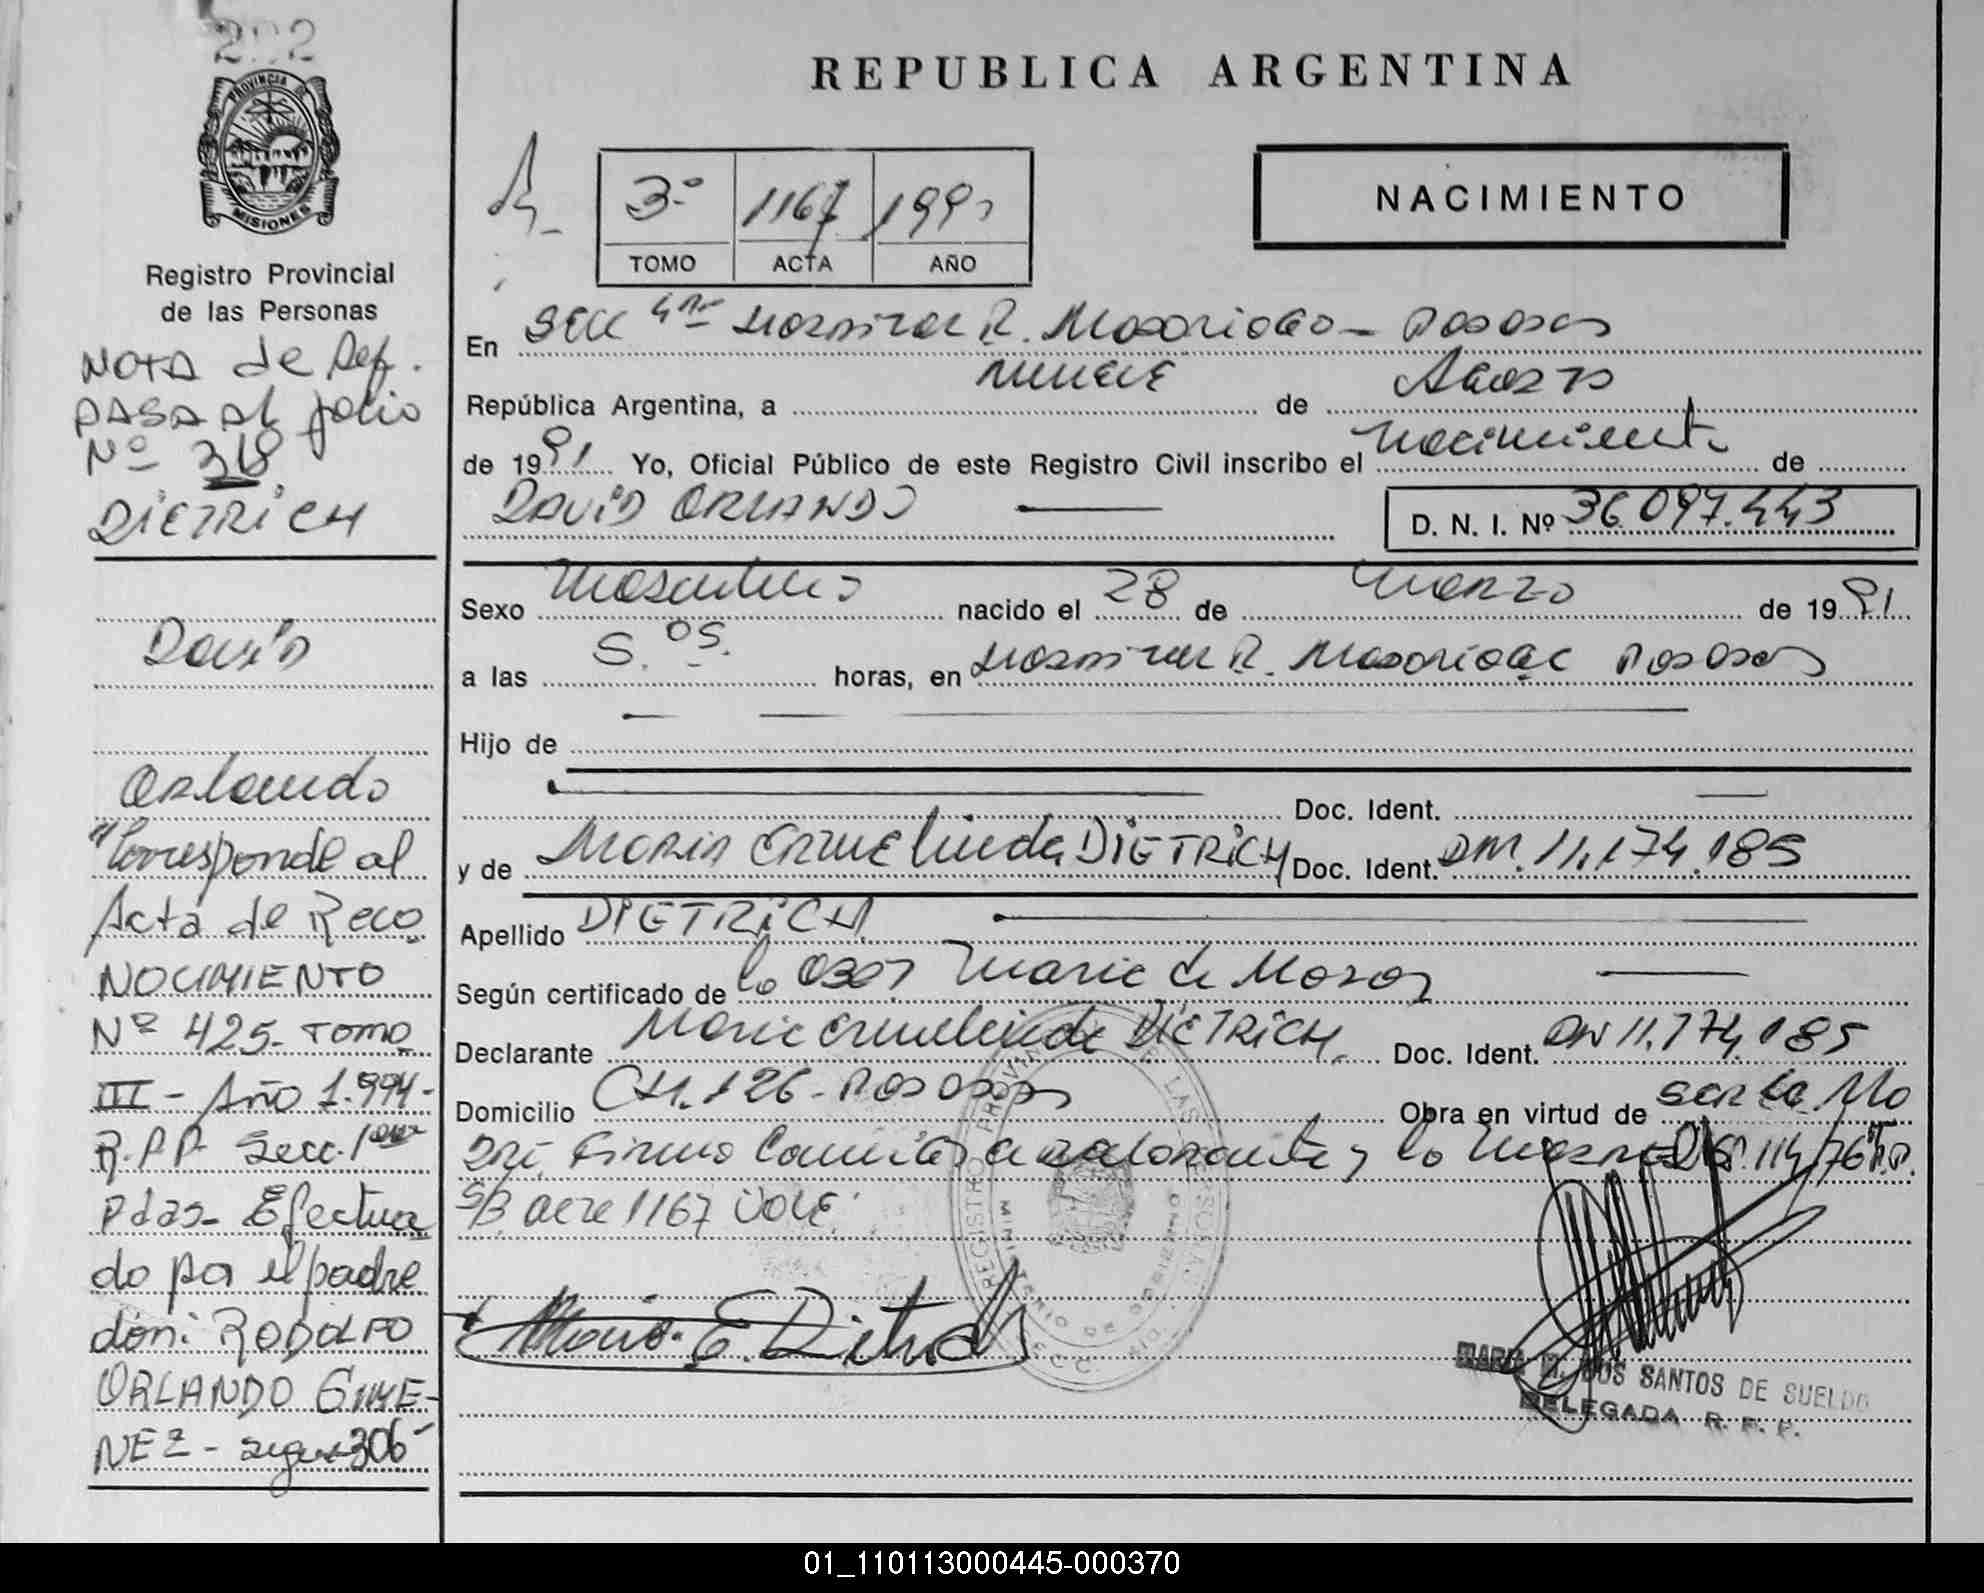 PROVINCIA DE
MISIONES
Registro Provincial
de las Personas
NOTA de Ref.
PASA AL folio
Nº 318
DIETRICH
David
Orlando
"Corresponde al
Acta de Reco
NOCIMIENTO
Nº 425- Tomo
III - Año 1.994-
R.P.P. Secc. 1era
Pdas- Efectua
do por el padre
don: RODOLFO
ORLANDO GIME-
NEZ - 306
REPUBLICA ARGENTINA
3º 1167 1991
TOMO ACTA AÑO
NACIMIENTO
En Secc 4ta Hospital R. Madariaga - Posadas
República Argentina, a nueve de Agosto
de 1991 Yo, Oficial Público de este Registro Civil inscribo el nacimiento de
DAVID ORLANDO D. N. I. Nº 36.097.443
Sexo Masculino nacido el 28 de Marzo de 1991
a las 5.05. horas, en Hospital R. Madariaga Posadas
Hijo de
Doc. Ident.
y de Maria Ermelinda DIETRICH Doc. Ident. DNI. 11.174.185
Apellido DIETRICH
Según certificado de la Obst Maria de
Declarante Maria Ermelinda DIETRICH. Doc. Ident. DNI 11.174.185
Domicilio CH. 126 - Posadas Obra en virtud de
y la 114/76
S/B acta 1167 VALE.
Maria E. Dietrich
REGISTRO PROVINCIAL DE LAS PERSONAS
MINISTERIO DE GOBIERNO
DOS SANTOS DE SUELDO
DELEGADA R. P. P.
01_110113000445-000370